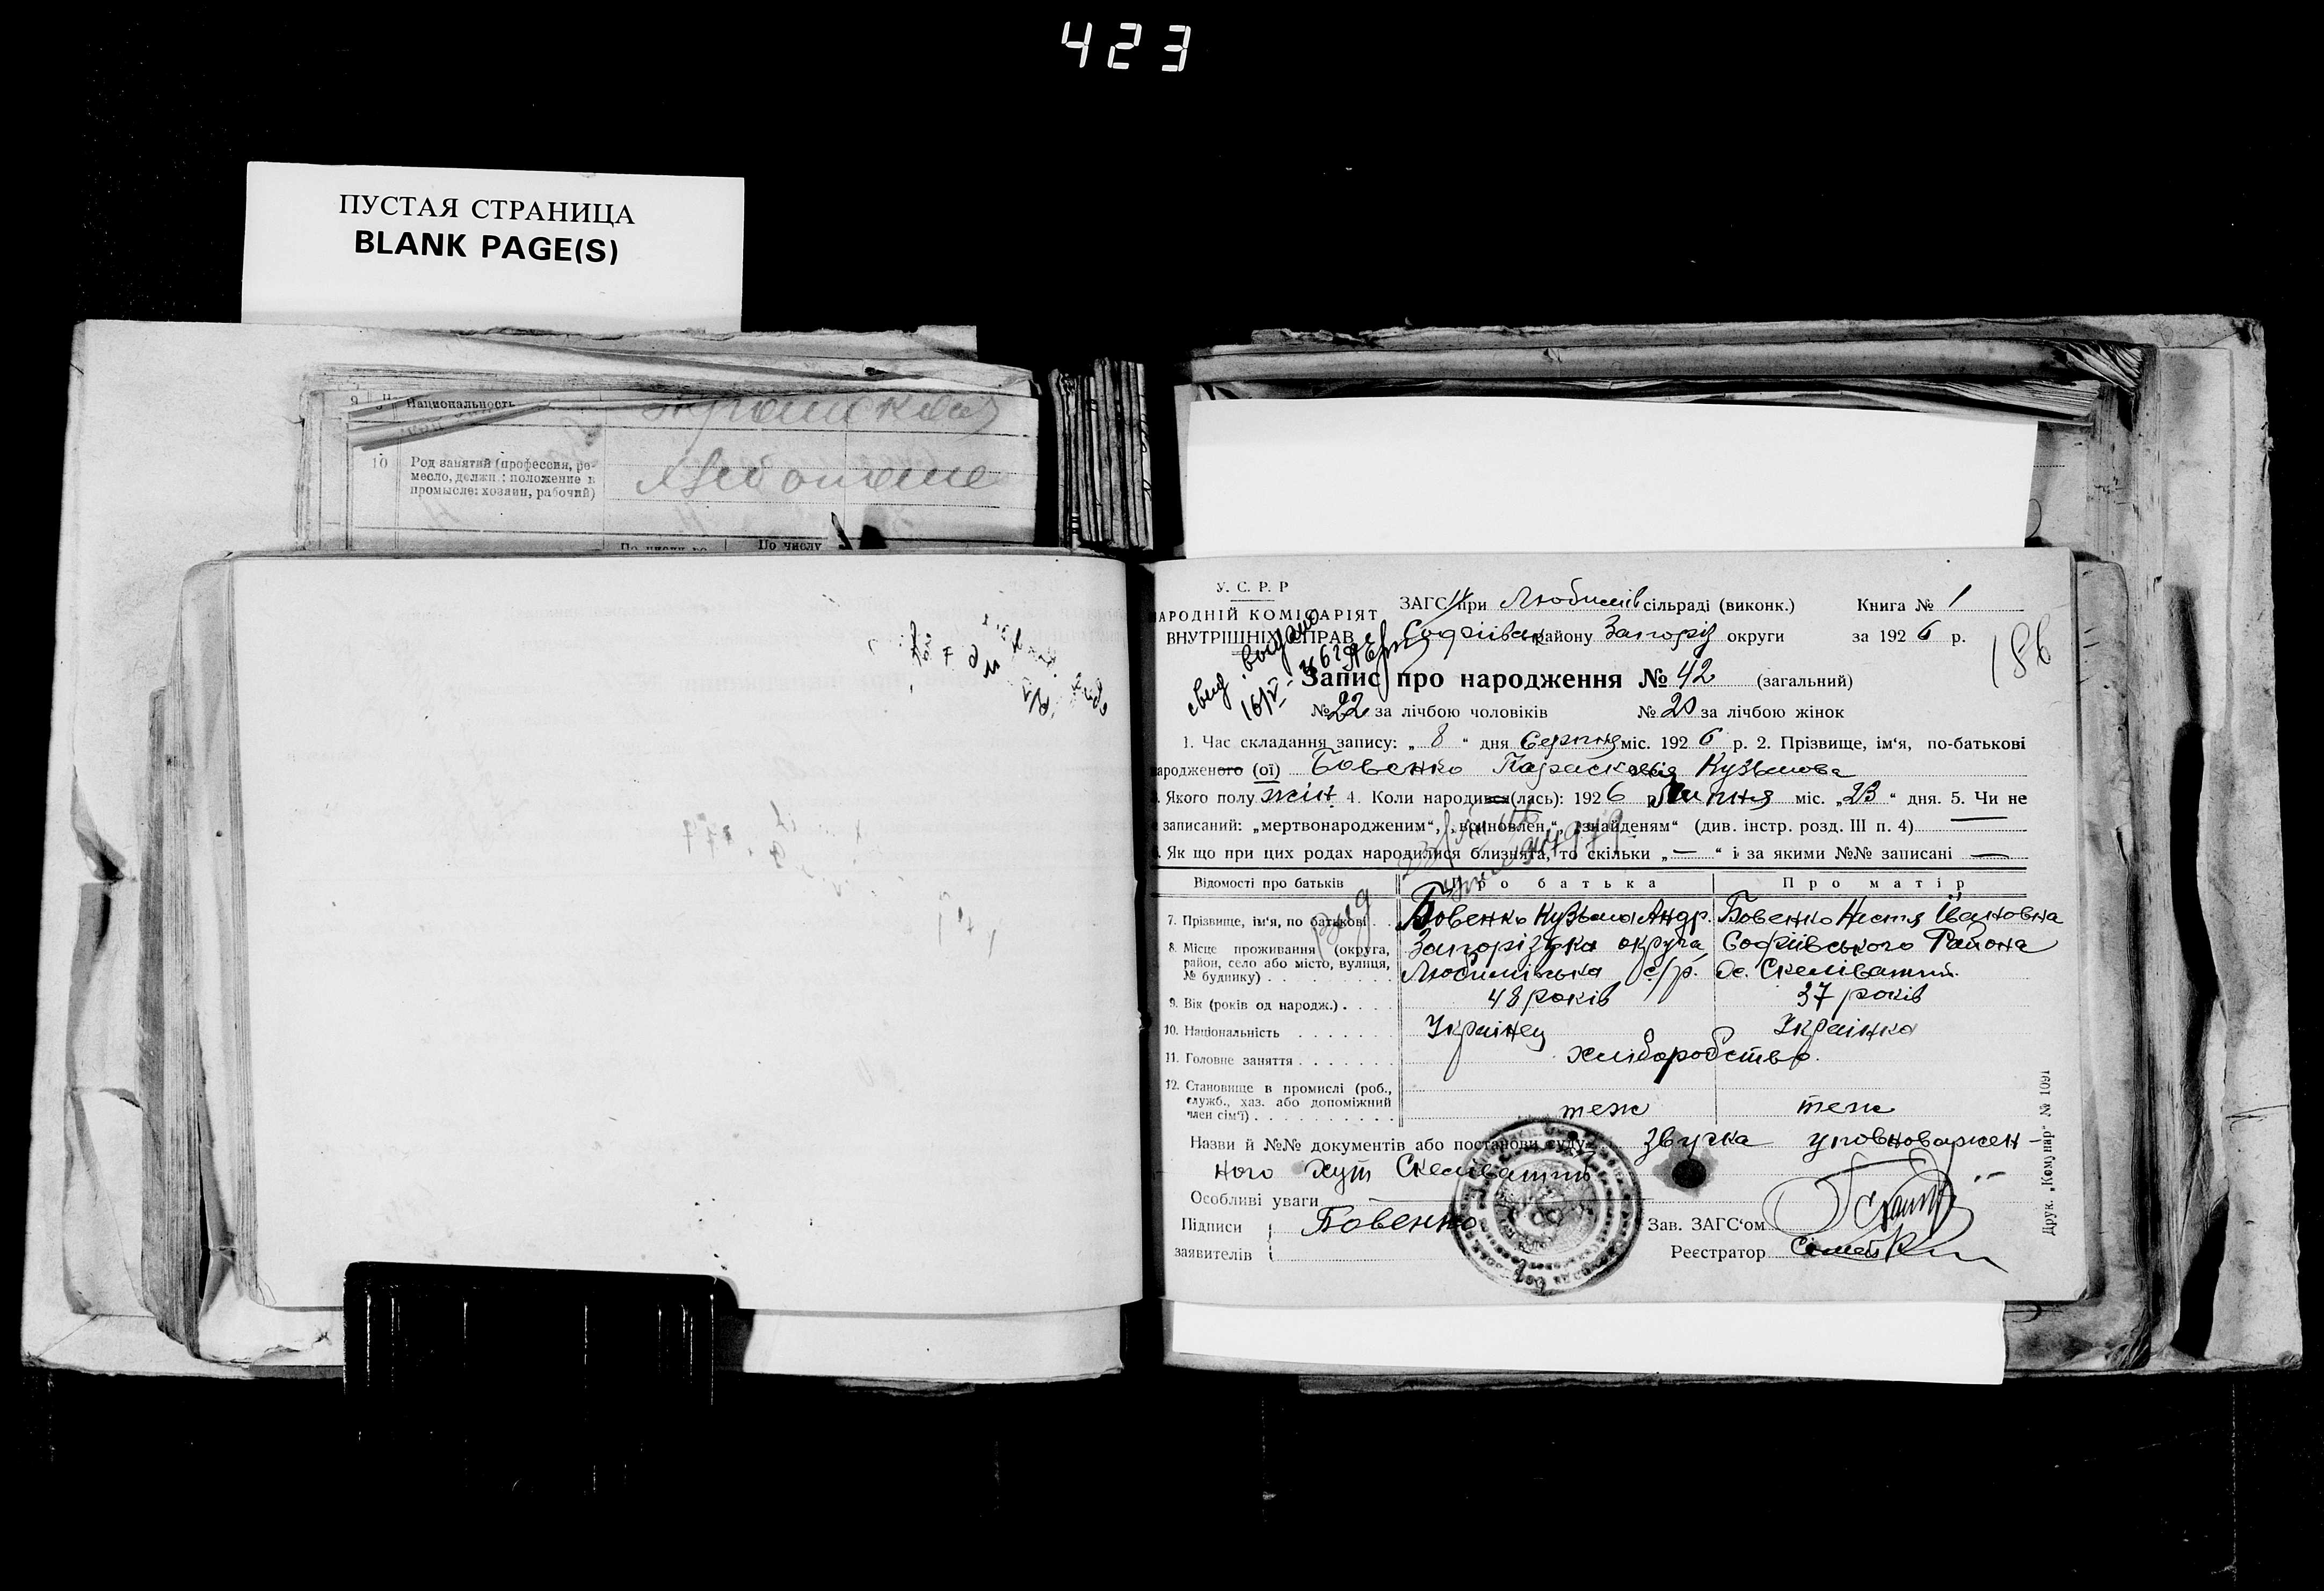 423
ПУСТАЯ СТРАНИЦА
BLANK PAGE(S)
9 Национальность
10 Род занятий (профессия, ре-
месло, должн.: положение в
промысле: хозяин, рабочий)
По числу
У. С. Р. Р
НАРОДНІЙ КОМІСАРІЯТ
ВНУТРІШНІХ СПРАВ
ЗАГС при Любимів сільраді (виконк.) Книга № 1
Софіївськ району Запоріз округи за 1926 р.
186
свид. выдано
16/V
Запис про народження № 42 (загальний)
№ 22 за лічбою чоловіків № 20 за лічбою жінок
1. Час складання запису: „ 8 “ дня Серпня міс. 1926 р. 2. Прізвище, ім‘я, по-батькові
народженого (ої) Бовенко Параскевія Кузьмова
3. Якого полу жін. 4. Коли народився (лась): 1926 р. Липня міс. „23“ дня. 5. Чи не
записаний: „мертвонародженим“, „вриновлен.“, „знайденям“ (див. інстр. розд. III п. 4) —
6. Як що при цих родах народилися близнята, то скільки „—“ і за якими №№ записані —
Відомості про батьків Про батька Про матір
7. Прізвище, ім‘я, по батькові Бовенко Кузьма Андр. Бовенко Настя Івановна
8. Місце проживання (округа, Запорізька округа Софіївського Района
район, село або місто, вулиця, Любимівська с/р. Ос. Скеліватий
№ будинку)
9. Вік (років од народж.) 48 років 37 років
10. Національність Українец Українка
11. Головне заняття хліборобство.
12. Становище в промислі (роб.,
служб., хаз. або допоміжний
член сім‘ї) теж теж
Назви й №№ документів або постанови суду звучка уповноважен-
ного хут Скеліватий
Особливі уваги
Підписи Бовенко Зав. ЗАГС‘ом
заявителів Реєстратор
Друк. „Комунар“ № 1091